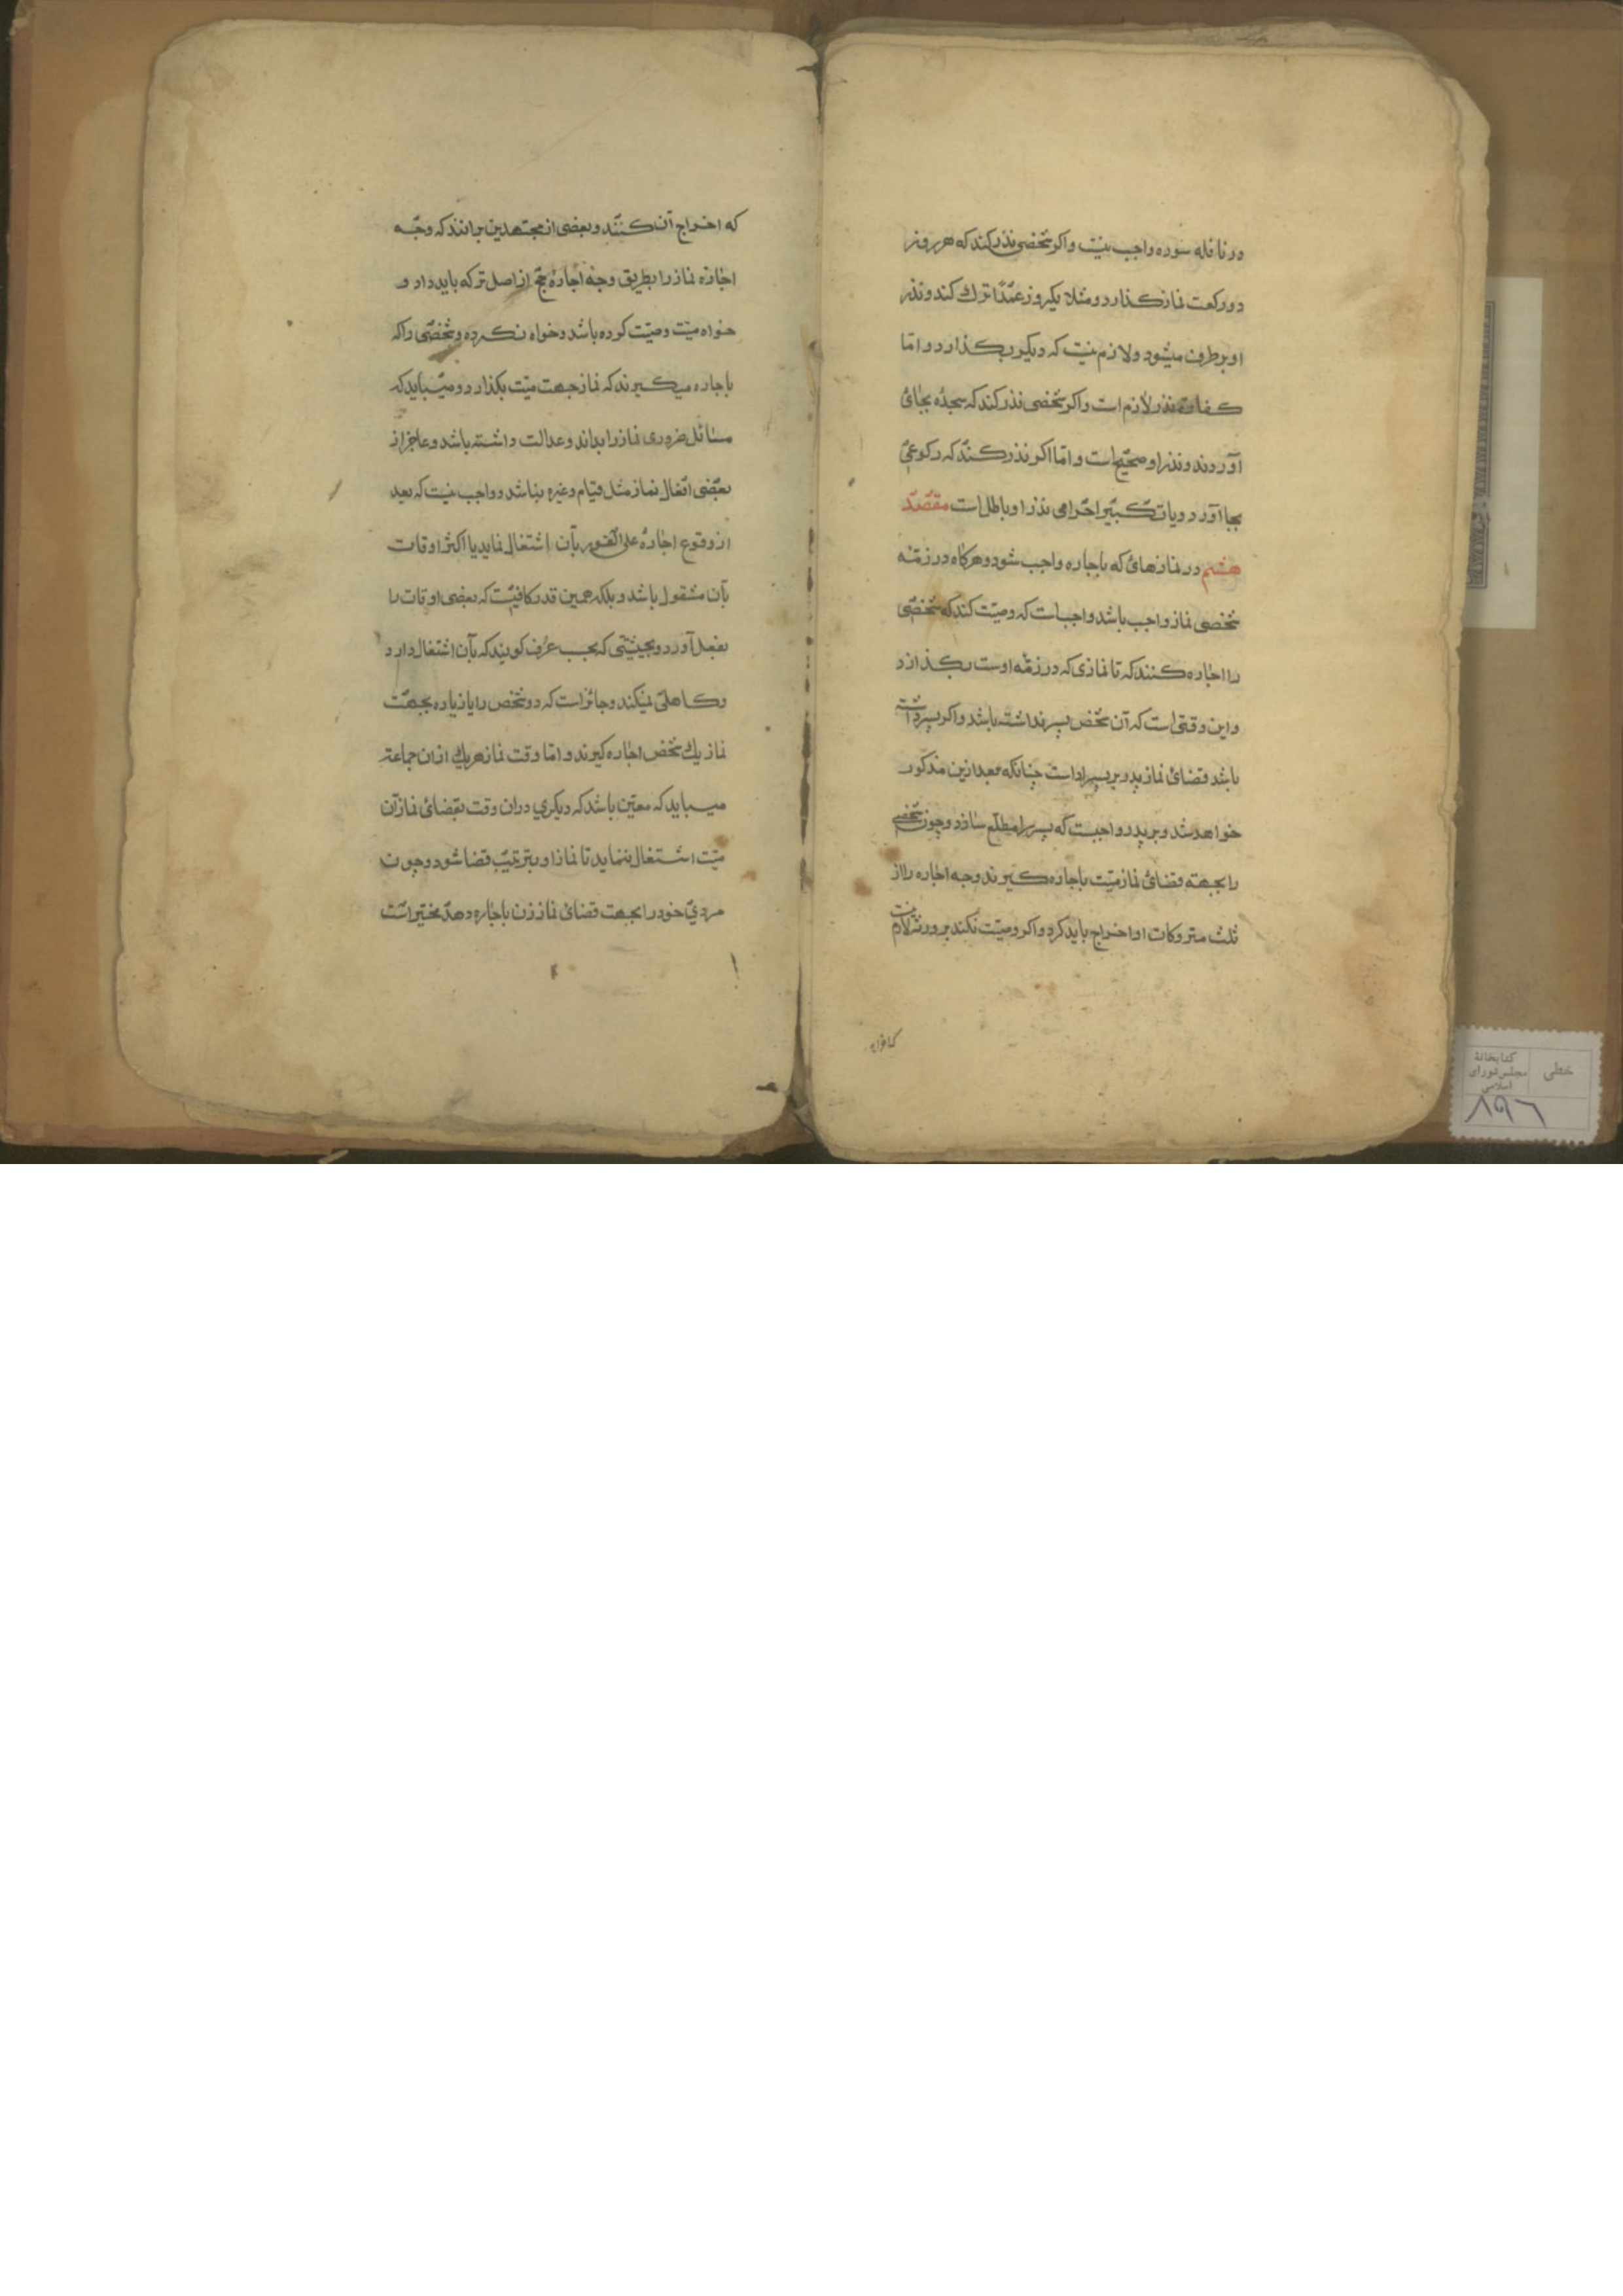 در نافله سوره واجب نیست و اکر شخصی نذر کند که هر روز
دو رکعت نماز کذارد و مثلا یکروز عمدًا ترك کند و نذر
او برطرف میشود و لازم نیست که دیکر بکذارد و امّا
کفارهٔ نذر لازم است و اکر شخصی نذر کند که سجدهٔ بجائ
آورد ندو نذر او صحیح است و امّا اکر نذر کند که رکوعی
بجا آورد و یا تکبیر احرامی نذر او باطل است مقصد
هشتم در نمازهائ که باجاره واجب شود و هرکاه در زمّهٔ
شخصی نماز واجب باشد واجب است که وصیّت کند که شخصی
را اجاره کنند که تا نمازی که در زمّه اوست بکذارد
و این وقتی است که آن شخص پسر نداشته باشد و اکر پسر داشته
باشد قضائ نماز پدر بر پسر اداست چنانکه بعد ازین مذکور
خواهد شد و بر پدر واجبست که پسر را مطلّع سازد و چون شخصی
را بجهته قضائ نماز میّت باجاره کیرند وجه اجاره را از
ثلث متروکات او اخراج باید کرد و اکر وصیّت نکند بر ورثه لازم نیست
که اخراج آن کنند و بعضی از مجتهدین برانند که وجه
اجاره نماز را بطریق وجه اجارهٔ حجّ از اصل ترکه باید داد و
خواه میّت وصیّت کرده باشد و خواه نکرده و شخصی را که
باجاره میکیرند که نماز جهت میّت بکذارد و میباید که
مسائل ضروری نماز را بداند و عدالت داشته باشد و عاجز از
بعضی افعال نماز مثل قیام و غیره نباشد و واجب نیست که بعد
از وقوع اجارهٔ علی الفور بآن اشتغال نماید یا اکثر اوقات
بآن مشغول باشد و بلکه همین قدر کافیست که بعضی اوقات را
بفعل آورد و بحیثیّتی که بحسب عرف کویند که بآن اشتغال دارد
و کاهلی نمیکند و جائز است که دو شخص را یا زیاده بجهت
نماز یك شخص اجاره کیرند و امّا وقت نماز هریك ازان جماعة
میباید که معیّن باشد که دیکری دران وقت بقضائ نماز آن
میّت اشتغال ننماید تا نماز او بترتیب قضا شود و چون
مردی خود را بجهت قضائ نماز زن باجاره دهد مخیّر است
خطی
کتابخانهٔ
مجلس شورای
اسلامی
۸۹۶